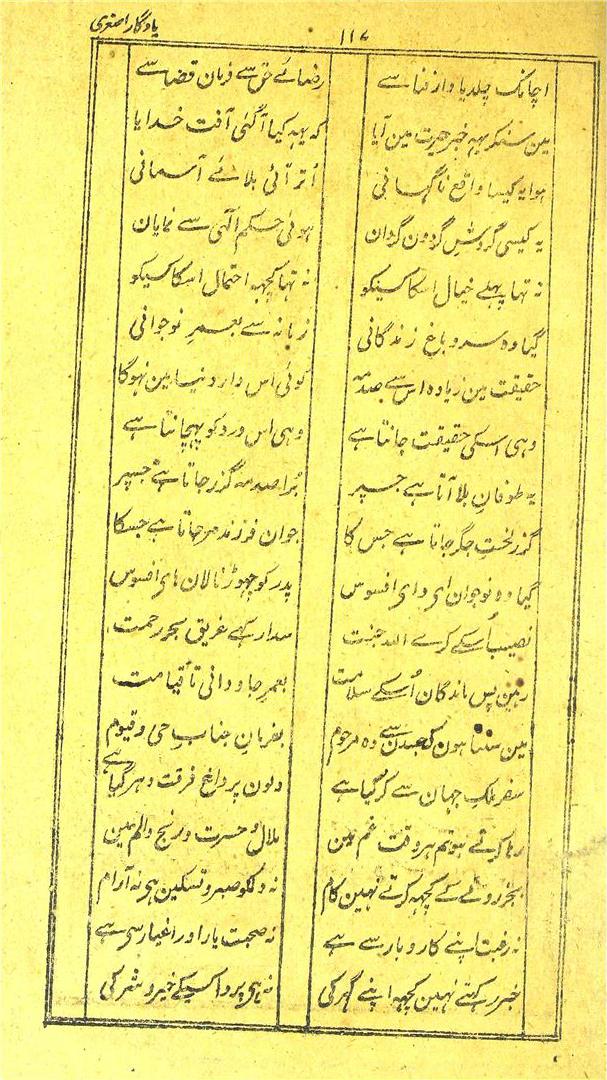 ۱۱۷
یادگار اصغری
اچانک چلدیا دار فنا سے رضائے حق سے فرمان قضا سے
مین سنکر یہہ خبر حیرت مین آیا کہ یہہ کیا آگئی آفت خدایا
ہوا یہ کیسا واقع ناگہانی اُتر آئی بلائے آسمانی
یہ کیسی گردشِ گردون گردان ہوئی حکم الٰہی سے نمایان
نہ تہا پہلے خیال اسکا کسیکو نہ تہا کچہہ احتمال اسکا کسیکو
گیا وہ سرو باغ زندگانی زمانہ سے بعمرِ نوجوانی
حقیقت مین زیادہ اس سے صدمہ کوئی اس دار دنیا مین نہوگا
وہی اسکی حقیقت جانتا ہے وہی اس درد کو پہچانتا ہے
یہ طوفانِ بلا آتا ہے جسپر بُرا صدمہ گزر جاتا ہے جسپر
گزر لختِ جگر جاتا ہے جس کا جوان فرزند مرجاتا ہے جسکا
گیا وہ نوجوان ای وای افسوس پدر کو چہوڑ نالان ہای افسوس
نصیب اُسکے کرے اللہ جنت سدا رکہے غریق بحر رحمت
رہین پس ماندگان اُسکے سلامت بعمرِ جاودانی تا قیامت
مین سنتا ہون کہ جبدن سے وہ مرحوم بفرمانِ جنابِ حی و قیوم
سفر ملکِ جہان سے کر گیا ہے دلون پر داغ فرقت دہر گیا ہے
رہا کرتے ہو تم ہر وقت غم مین ملال و حسرت و رنج و الم مین
بجز رونے کے کچہہ کرتے نہین کام نہ دلکو صبر و تسکین ہی نہ آرام
نہ رغبت اپنے کاروبار سے ہے نہ صحبت یار اور اغیار سے ہے
خبر رکہتے نہین کچہہ اپنے گہر کی نہ ہی پروا کسیکے خیر و شر کی